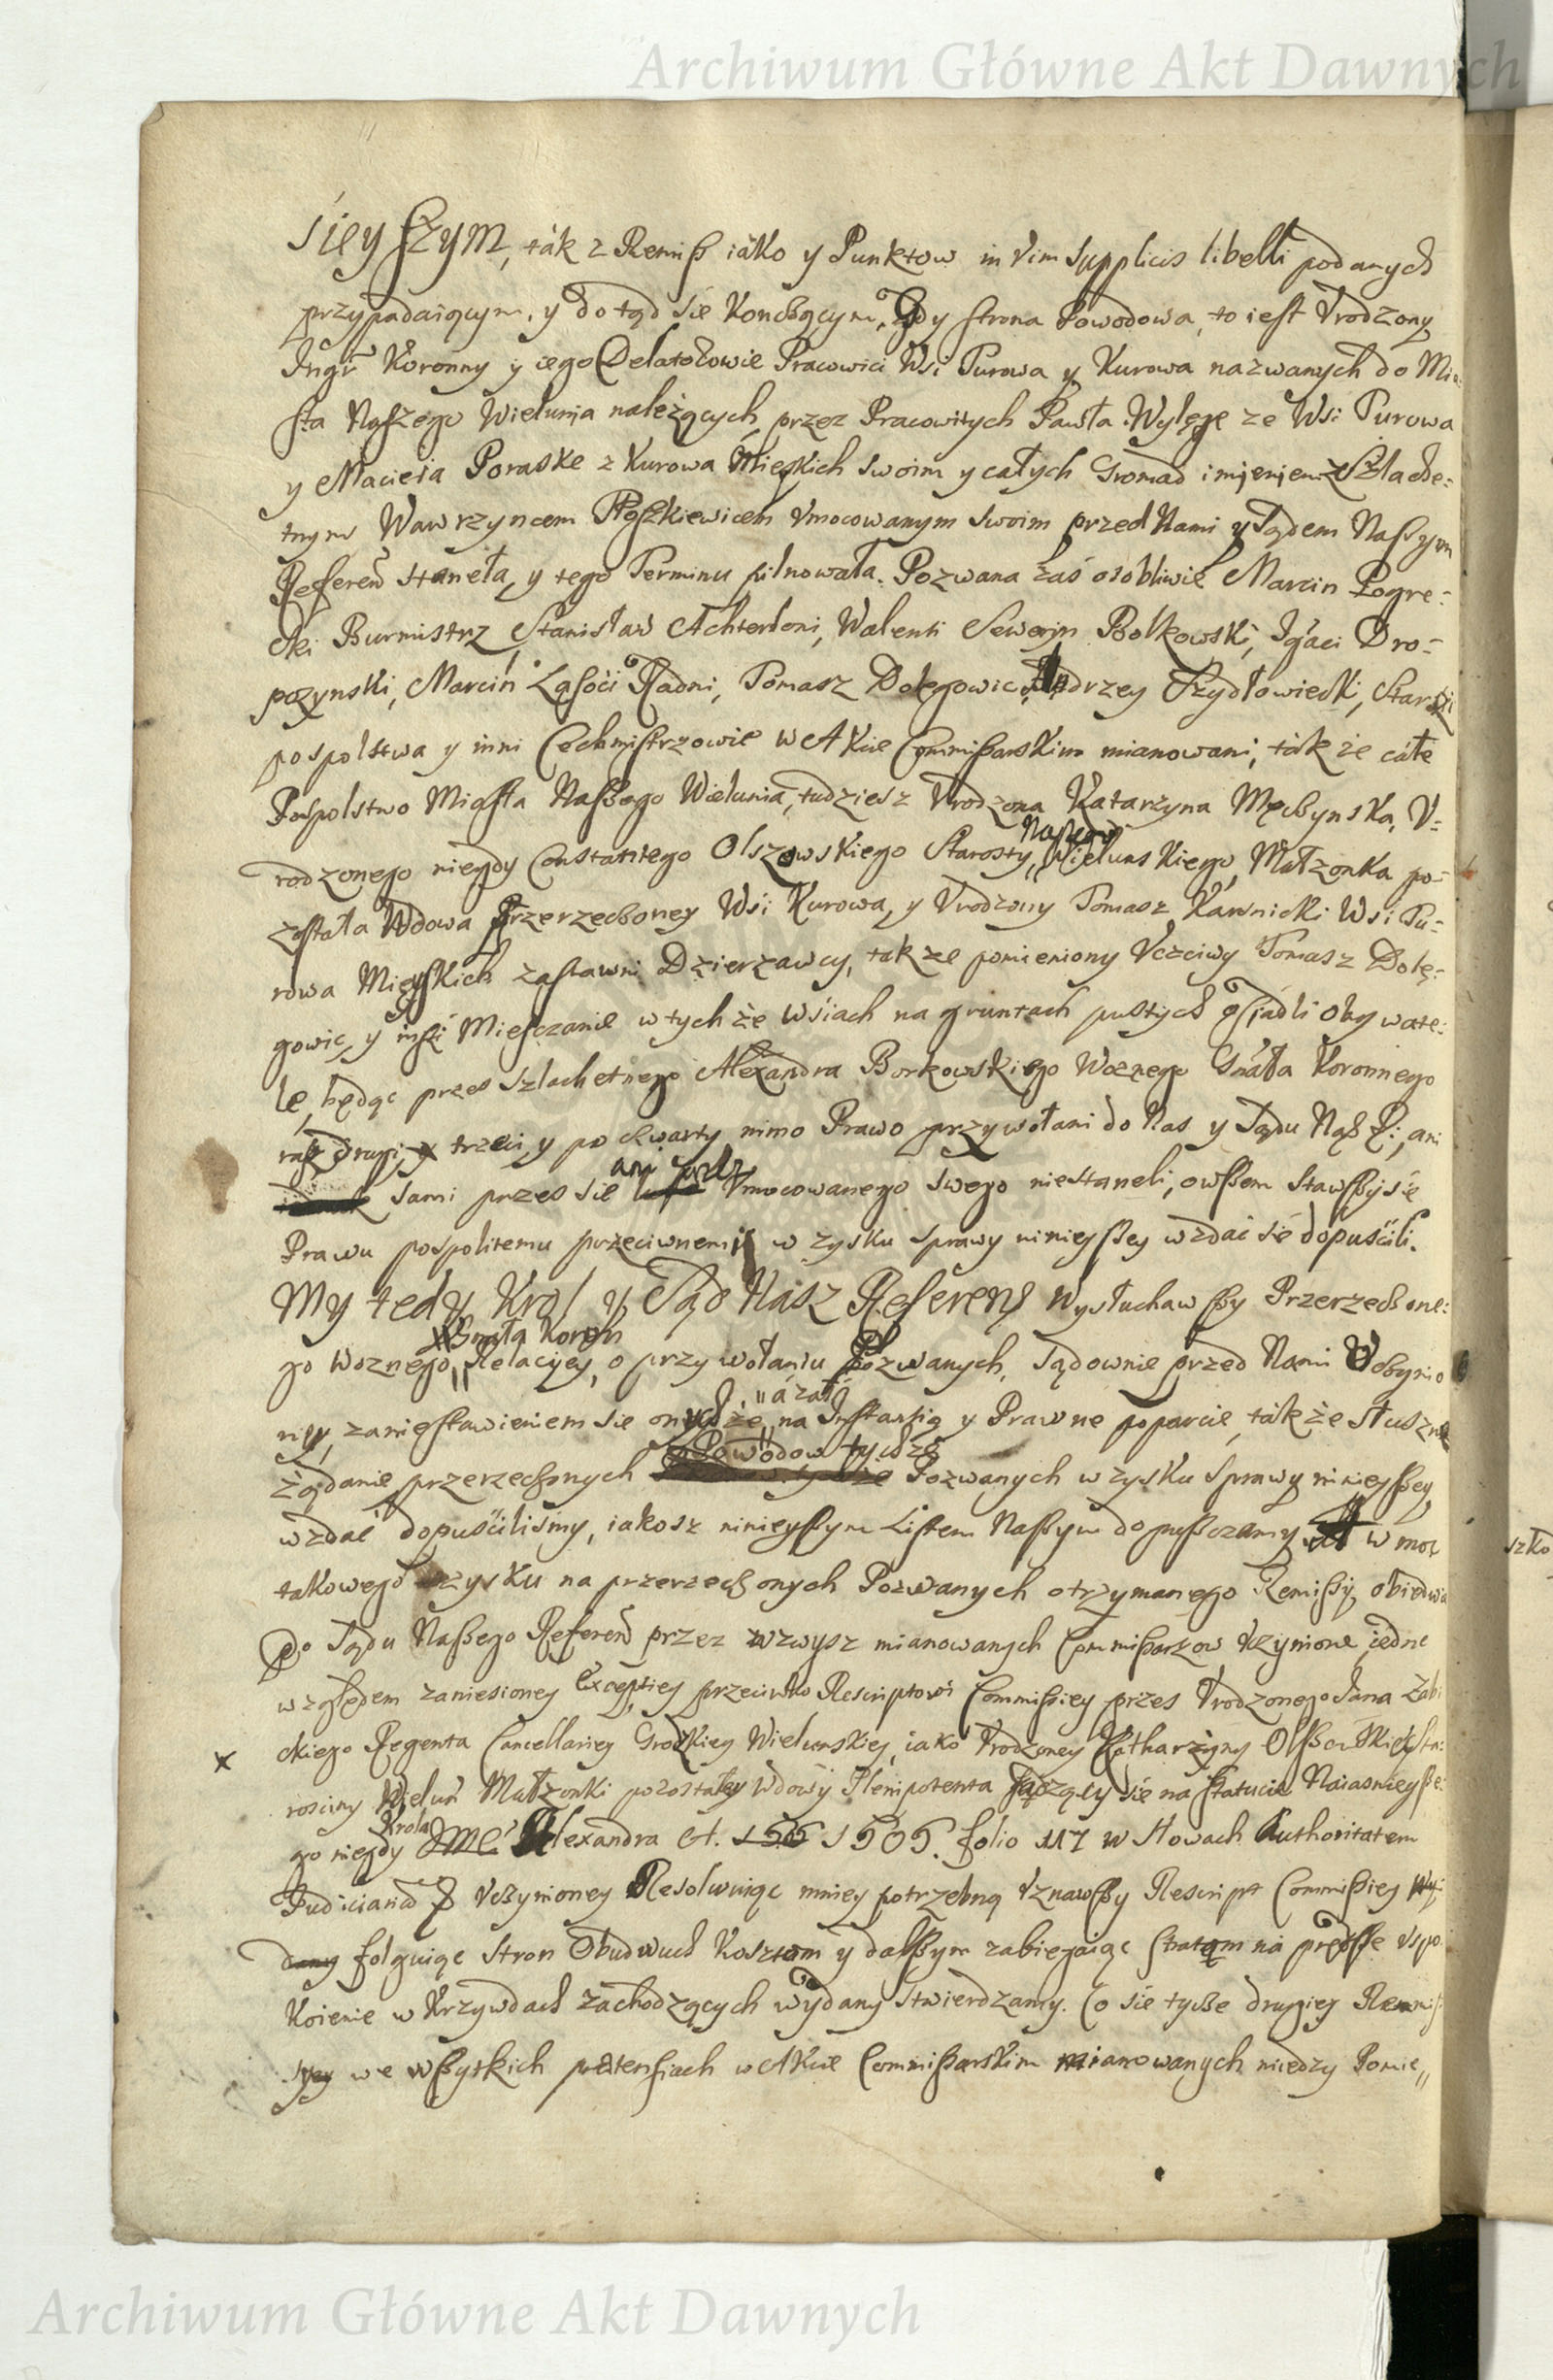 Archiwum Główne Akt Dawnych
sięyszym, ták z Remiß iáko y Punktow in vim supplicis libelli podanych
przypadaiącym, y dotąd się Konczącym, Gdy strona Powodowa, to iest Vrodzony
Instgr Koronny y iego Delatorowie Pracowici Wsi Turowa y Kurowa nazwanych do Mia
sta Naszego Wielunia należących, przez Pracowitych Pawła Wylęgę ze Wsi Turowa
y Macieia Poraske z Kurowa Mieyskich swoim y całych Gromad imieniem z Szlache=
tnym Wawrzyncem Płoszkiewicem Vmocowanym swoim przed Nami y Sądem Naßym
Referen stanęła, y tego Terminu pilnowała. Pozwana zaś osobliwie Marcin Pogre=
cki Burmistrz, Stanisław Achterloni, Walenti Seweryn Bolkowski, Ignaci Dro=
pozynski, Marcin Ląsoci Radni, Tomasz Dolęgowic, Andrzey Szydłowiecki, Starsi
pospolstwa y inni Cechmistrzowie w Akcie Commißarskim mianowani, ták że cáłe
Pospolstwo Miasta Naßego Wielunia, tudziesz Vrodzona Katarzyna Męcßynska, V=
rodzonego niegdy Constantego Olszowskiego Starosty Naszego Wielunskiego, Małzonka po=
zostáła Wdowa Przerzeczoney Wsi Kurowa, y Vrodzony Tomasz Karsnicki Wsi Tu=
rowa Mieyskich zastawni Dzierzawcy, takze pomieniony Vczciwy Tomasz Dolę=
gowic, y inßi Miesczanie w tych że Wsiach na gruntach pustych osiadli Obywate=
le, będąc przes Szlachetnego Alexandra Borkowskiego Woznego Gnáła Koronnego
raz, drugi, trzeci, y po czwarty nimo Prawo przywołani do Nas y Sądu Naß R:, ani
sami przes się ani przez Vmocowanego swego niestaneli, owßem stawßy się
Prawu pospolitemu przeciwnemi w zysku sprawy ninieyßey wzdać się dopuścili.
My tedy Krol y Sąd Nasz Referens wysłuchawßy Przerzeczone=
go Woznego Gnała Koronn Relacyey, o przywołaniu Pozwanych, sądownie przed Nami Vczynio
ney, zaniestawieniem się onych że, á zatym na Instantią y Prawne poparcie, tákże słuszne
żądanie przerzeczonych Powodow tychże Pozwanych w zysku sprawy ninieyßey,
wzdać dopuścilismy, iakosz ninieyßym Listem Naßym dopußczamy w moc
takowego zysku na przerzeczonych Pozwanych otrzymanego Remißy, obiedwie
do Sądu Naßego Referen przez wzwysz mianowanych Commißarzow vczynione, iedne
względem zaniesioney Excepciey przeciwko Rescriptowi Commißiey przes Vrodzonego Jana Zabi
ckiego Regenta Cancellariey Grodzkiey Wielunskiey, iako Vrodzoney Katharzyny Olßowskiey Sta=
rosciny Wielun Małzonki pozostałey Wdowy Plenipotenta sądzący się na statucie Naiasnieyße=
go niegdy Krola JMć Alexandra A. 1505. folio 117 w słowach Authoritatem
Judiciariā vczynioney Resolwuiąc mniey potrzebną vznawßy Rescript Commißiey
folguiąc stron obudwuch kosztom y dalßym zabiegaiąc stratom na prędsse vspo
koienie w krzywdach zachodzących wydany stwierdzamy. Co się tycze drugiey Remiß
syey we wßytkich prætensiach w Akcie Commißarskim mianowanych między Pomie„
Archiwum Główne Akt Dawnych